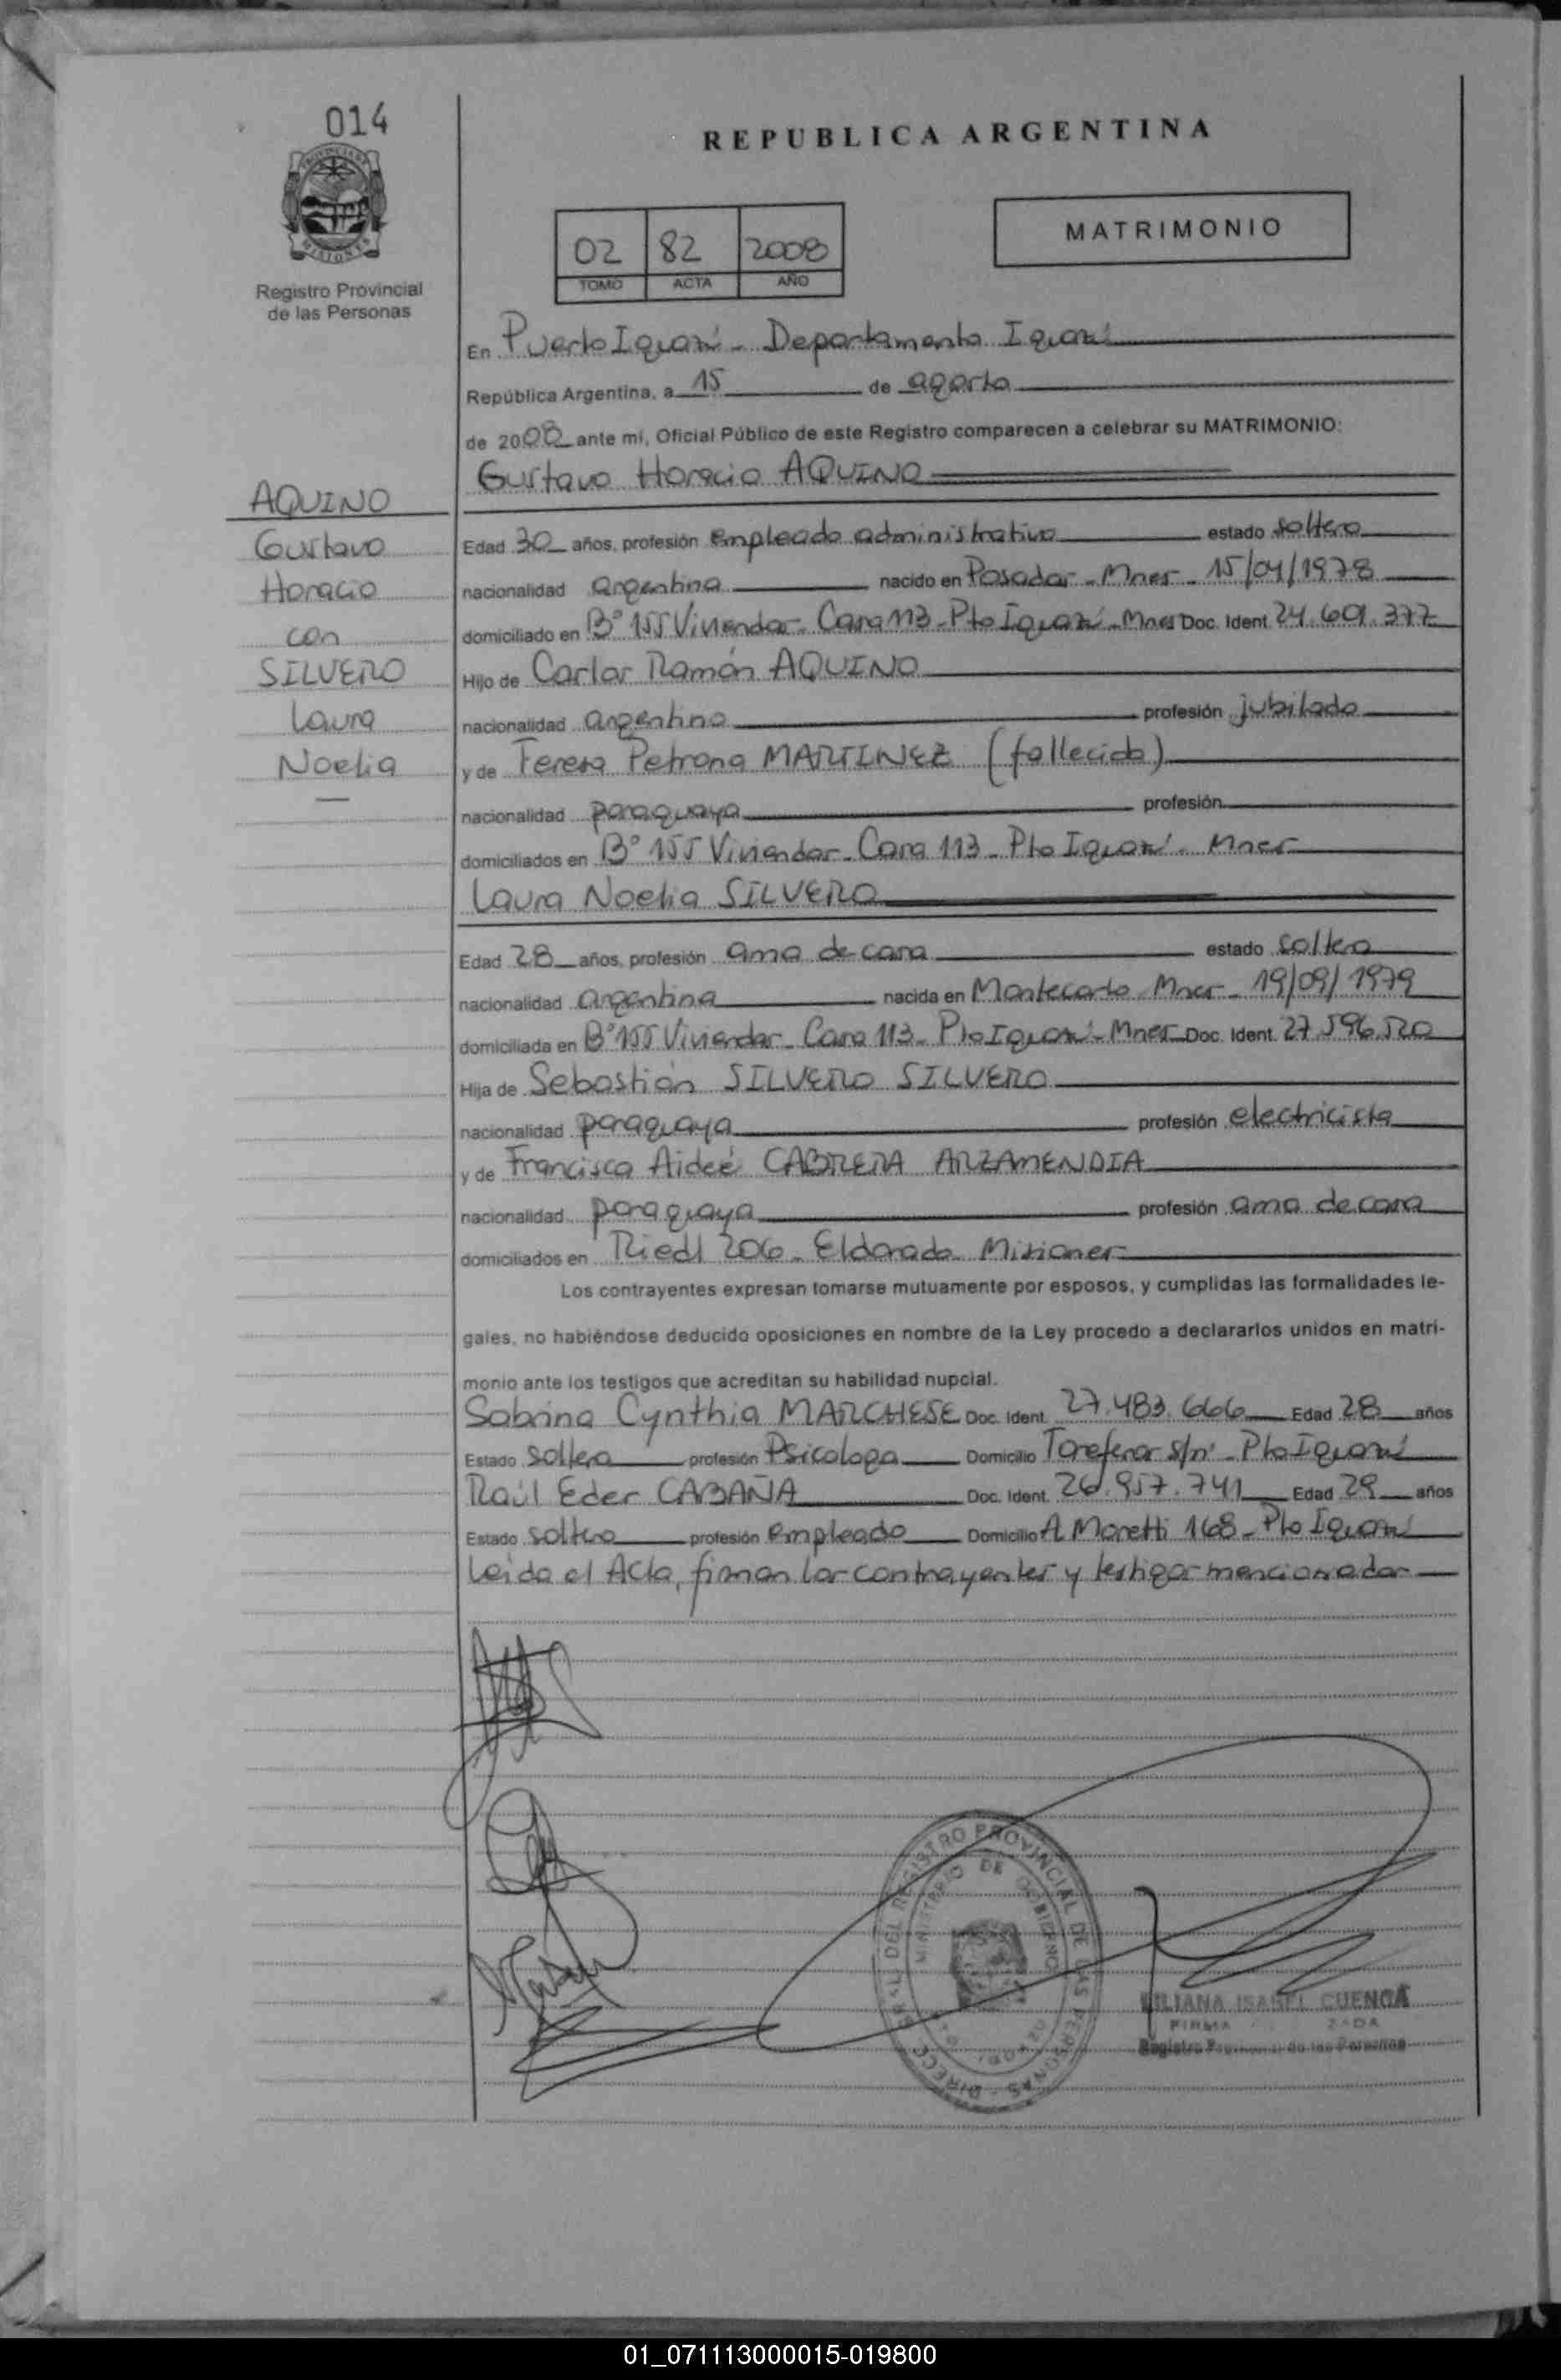 014
Registro Provincial
de las Personas
REPUBLICA ARGENTINA
02 82 2008
TOMO ACTA AÑO
MATRIMONIO
En Puerto Iguazú - Departamento Iguazú
República Argentina, a 15 de agosto
de 2008 ante mí, Oficial Público de este Registro comparecen a celebrar su MATRIMONIO:
Gustavo Horacio AQUINO
AQUINO
Gustavo
Horacio
con
SILVERO
Laura
Noelia
Edad 30 años, profesión empleado administrativo estado soltero
nacionalidad argentina nacido en Posadas - Mnes - 15/04/1978
domiciliado en B° 155 Viviendas - Casa 113 - Pto Iguazú - Mnes Doc. Ident. 24.601.377
Hijo de Carlos Ramón AQUINO
nacionalidad argentina profesión jubilado
y de Teresa Petrona MARTINEZ (fallecida)
nacionalidad paraguaya profesión
domiciliados en B° 155 Viviendas - Casa 113 - Pto Iguazú - Mnes
Laura Noelia SILVERO
Edad 28 años, profesión ama de casa estado soltera
nacionalidad argentina nacida en Montecarlo Mnes - 19/09/1979
domiciliada en B° 155 Viviendas - Casa 113 - Pto Iguazú - Mnes Doc. Ident. 27.596.520
Hija de Sebastián SILVERO SILVERO
nacionalidad paraguaya profesión electricista
y de Francisca Aideé CABRERA ARZAMENDIA
nacionalidad paraguaya profesión ama de casa
domiciliados en Riedl 206 - Eldorado Misiones
Los contrayentes expresan tomarse mutuamente por esposos, y cumplidas las formalidades le-
gales, no habiéndose deducido oposiciones en nombre de la Ley procedo a declararlos unidos en matri-
monio ante los testigos que acreditan su habilidad nupcial.
Sabrina Cynthia MARCHESE Doc. Ident. 27.483.666 Edad 28 años
Estado soltera profesión Psicologa Domicilio Tareferos s/n° - Pto Iguazú
Raúl Eder CABAÑA Doc. Ident. 26.957.741 Edad 29 años
Estado soltero profesión empleado Domicilio A Moretti 168 - Pto Iguazú
Leída el Acta, firman los contrayentes y testigos mencionados
REGISTRO PROVINCIAL DE LAS PERSONAS
MINISTERIO DE GOBIERNO
LILIANA ISABEL CUENCA
FIRMA
Registro Provincial de las Personas
01_071113000015-019800